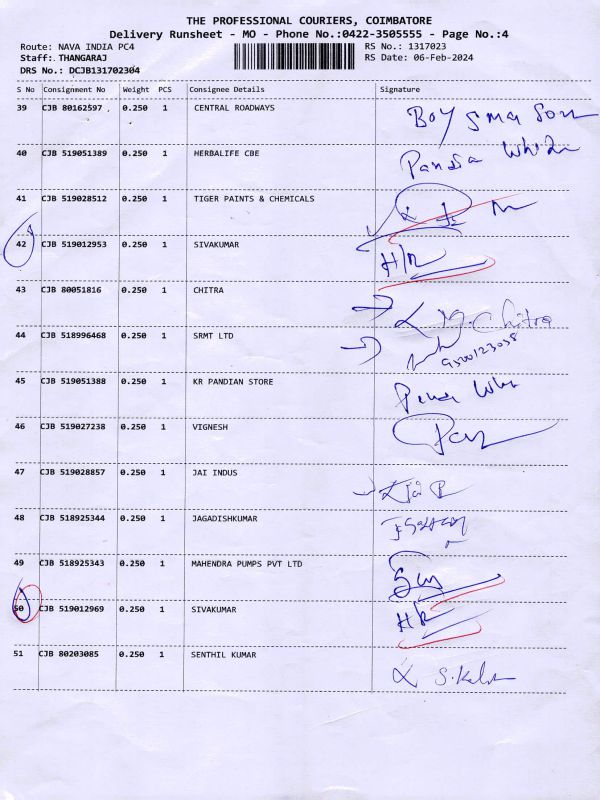 THE PROFESSIONAL COURIERS, COIMBATORE
Delivery Runsheet - MO - Phone No.:0422-3505555 - Page No.:4
Route: NAVA INDIA PC4 RS No.: 1317023
Staff: THANGARAJ RS Date: 06-Feb-2024
DRS No.: DCJB131702304
S No Consignment No Weight PCS Consignee Details Signature
39 CJB 80162597 0.250 1 CENTRAL ROADWAYS
40 CJB 519051389 0.250 1 HERBALIFE CBE
41 CJB 519028512 0.250 1 TIGER PAINTS & CHEMICALS
42 CJB 519012953 0.250 1 SIVAKUMAR H/R
43 CJB 80051816 0.250 1 CHITRA M. Chitra
44 CJB 518996468 0.250 1 SRMT LTD
45 CJB 519051388 0.250 1 KR PANDIAN STORE
46 CJB 519027238 0.250 1 VIGNESH
47 CJB 519028857 0.250 1 JAI INDUS
48 CJB 518925344 0.250 1 JAGADISHKUMAR
49 CJB 518925343 0.250 1 MAHENDRA PUMPS PVT LTD
50 CJB 519012969 0.250 1 SIVAKUMAR HR
51 CJB 80203085 0.250 1 SENTHIL KUMAR